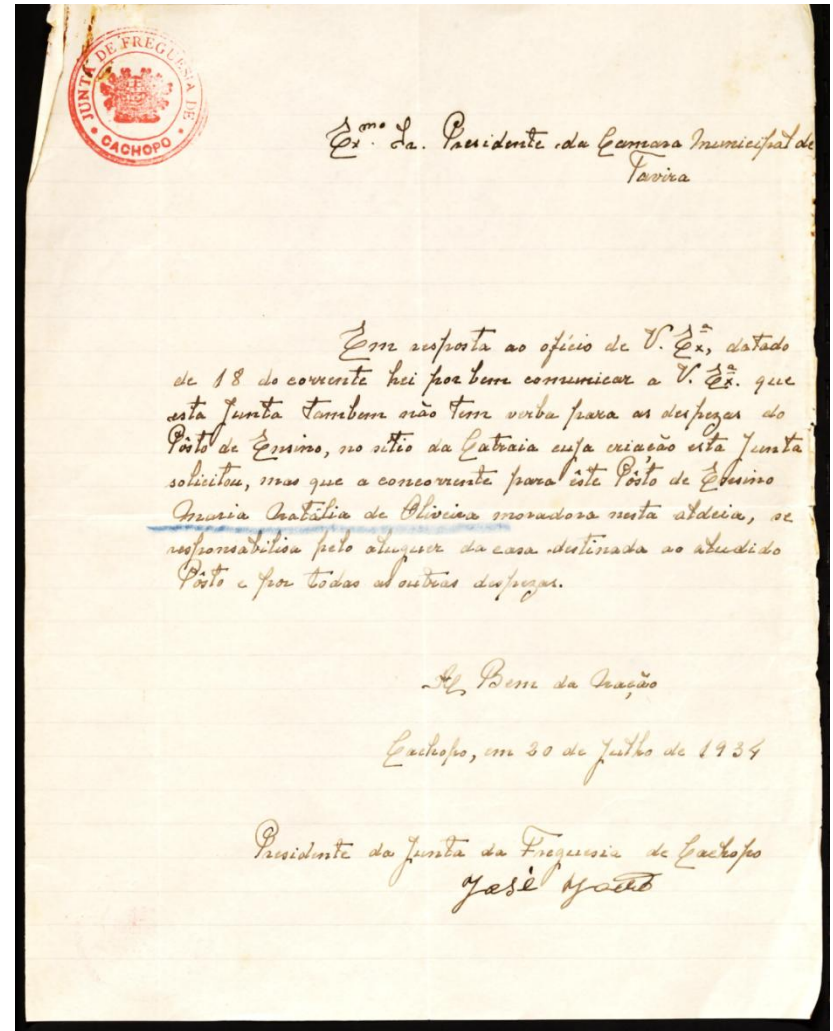 JUNTA DE FREGUESIA DE
CACHOPO
Exmo. Sr. Presidente da Camara Municipal de
Tavira
Em resposta ao ofício de V. Exª, datado
de 18 do corrente hei por bem comunicar a V. Exª. que
esta Junta tambem não tem verba para as despezas do
Pôsto de Ensino, no sítio da Catraia cuja criação esta Junta
solicitou, mas que a concorrente para êste Pôsto de Ensino
Maria Natália de Oliveira moradora nesta aldeia, se
responsabilisa pelo aluguer da casa destinada ao aludido
Pôsto e por todas as outras despezas.
A Bem da Nação
Cachopo, em 20 de Julho de 1934
Presidente da Junta da Freguesia de Cachopo
José